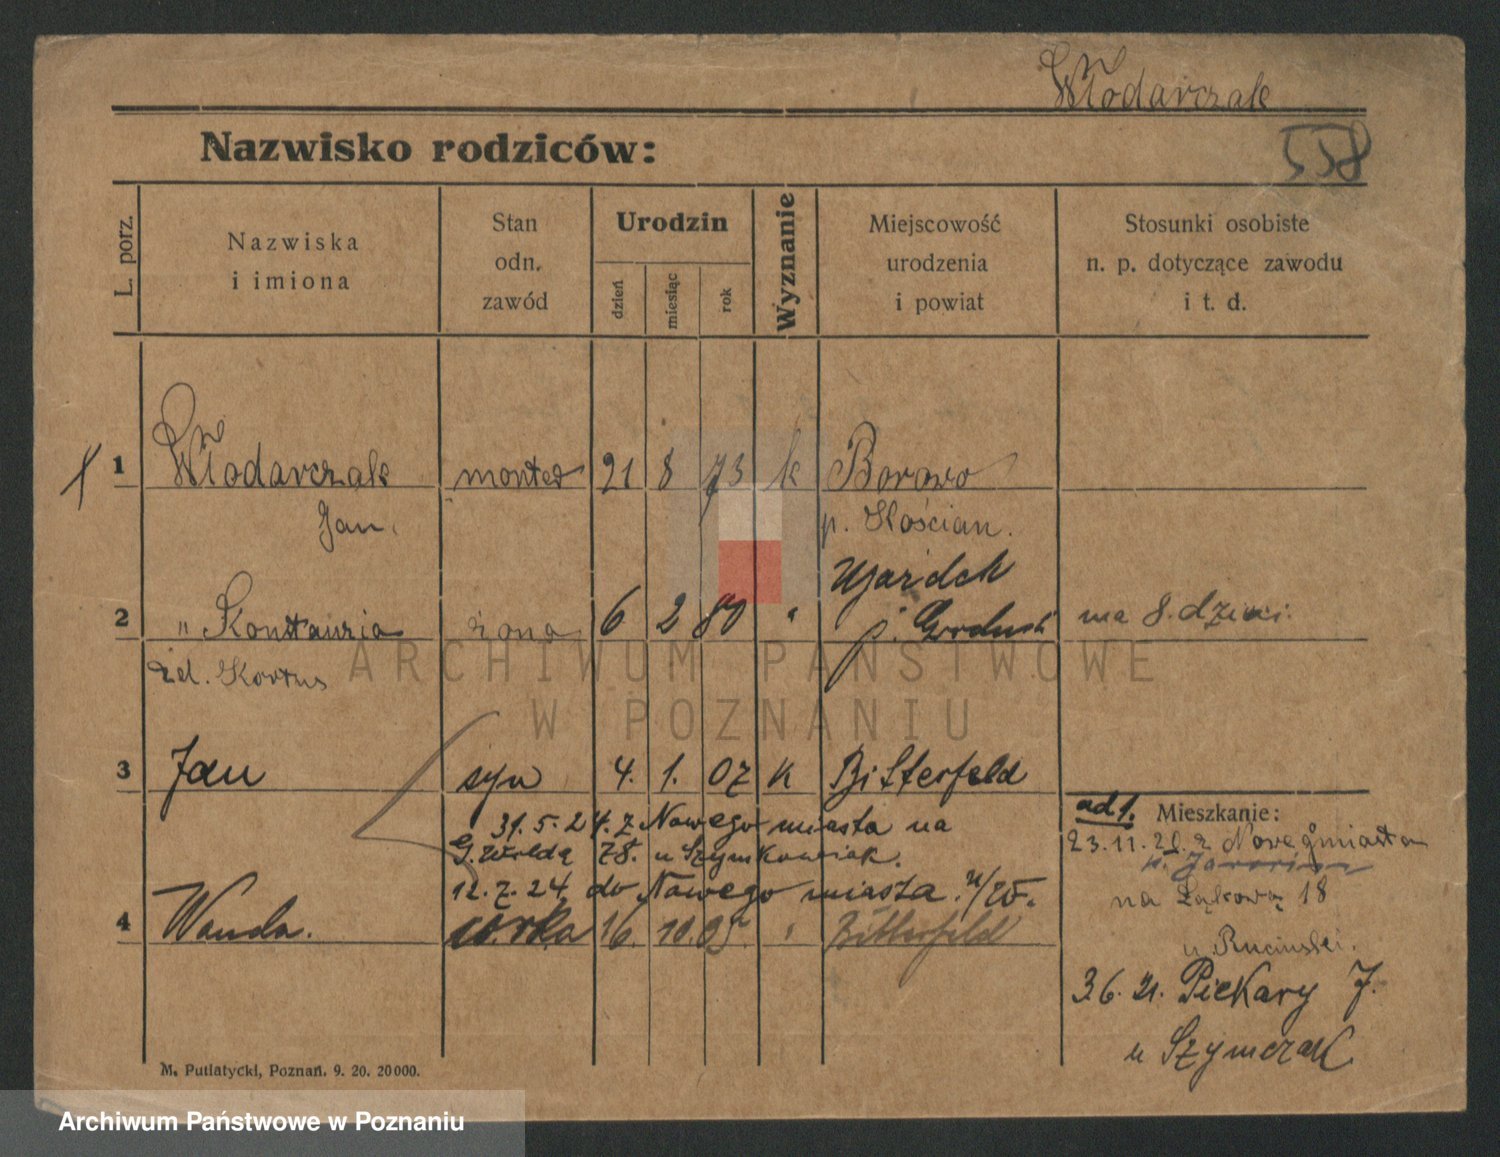 Włodarczak
558
Nazwisko rodziców:
L. porz.
Nazwiska
i imiona
Stan
odn.
zawód
Urodzin
dzień
miesiąc
rok
Wyznanie
Miejscowość
urodzenia
i powiat
Stosunki osobiste
n. p. dotyczące zawodu
i t. d.
1 Włodarczak monter 21 8 73 k Borowo
Jan. p. Kościan.
Ujazdek
2 " Konstancja żona 6 2 80 " p. ma 8. dzieci.
zd. Kortus
3 Jan syn 4. 1. 07 k Bitterfeld
ad 1. Mieszkanie:
31.5.24. z Nowego miasta na
G. Wildą 78. u Szymkowiak.
23.11.20. z Novegmiasta
p. Jarocin
12.7.24. do Nowego miasta. n/W.
na Łąkową 18
4 Wanda. córka 16. 10. 05. " Bitterfeld
u Rucinski.
3.6.21. Piekary 7.
u Szymczak
M. Putiatycki, Poznań. 9. 20. 20000.
ARCHIWUM PAŃSTWOWE
W POZNANIU
Archiwum Państwowe w Poznaniu